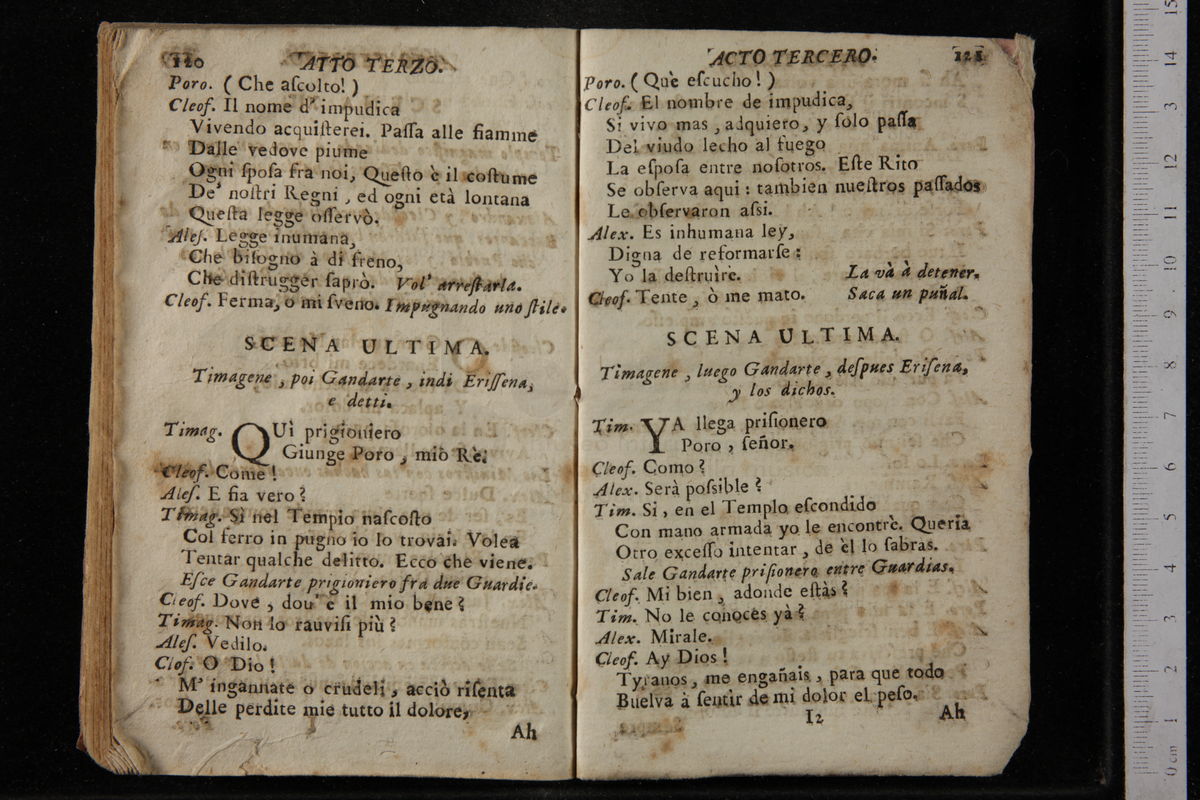 120 ATTO TERZO.
Poro. ( Che aſcolto! )
Cleof. Il nome d' impudica
Vivendo acquiſterei. Paſſa alle fiamme
Dalle vedove piume
Ogni ſpoſa fra noi, Queſto è il coſtume
De' noſtri Regni , ed ogni età lontana
Queſta legge oſſervò.
Aleſ. Legge inumana,
Che biſogno à di freno,
Che diſtrugger ſaprò. Vol' arreſtarla.
Cleof. Ferma, o mi ſveno. Impugnando uno ſtile.
SCENA ULTIMA.
Timagene , poi Gandarte , indi Eriſſena,
e detti.
Timag. QUì prigioniero
Giunge Poro , miò Rè.
Cleof. Come !
Aleſ. E fia vero ?
Timag. Sì nel Tempio naſcoſto
Col ferro in pugno io lo trovai. Volea
Tentar qualche delitto. Ecco che viene.
Eſce Gandarte prigioniero fra due Guardie.
Cleof. Dove , dou' è il mio bene ?
Timag. Non lo rauviſi più ?
Aleſ. Vedilo.
Clof. O Dio !
M' ingannate o crudeli , acciò riſenta
Delle perdite mie tutto il dolore,
Ah
ACTO TERCERO. 121
Poro. ( Què eſcucho ! )
Cleof. El nombre de impudica,
Si vivo mas , adquiero, y ſolo paſſa
Del viudo lecho al fuego
La eſpoſa entre noſotros. Eſte Rito
Se obſerva aqui : tambien nueſtros paſſados
Le obſervaron aſsi.
Alex. Es inhumana ley,
Digna de reformarſe :
Yo la deſtruirè. La và à detener.
Cleof. Tente , ò me mato. Saca un puñal.
SCENA ULTIMA.
Timagene , luego Gandarte , deſpues Eriſena,
y los dichos.
Tim. YA llega priſionero
Poro , ſeñor.
Cleof. Como ?
Alex. Serà poſsible ?
Tim. Si , en el Templo eſcondido
Con mano armada yo le encontrè. Queria
Otro exceſſo intentar , de èl lo ſabras.
Sale Gandarte priſionero entre Guardias.
Cleof. Mi bien , adonde eſtàs ?
Tim. No le conoces yà ?
Alex. Mirale.
Cleof. Ay Dios !
Tyranos, me engañais , para que todo
Buelva à ſentir de mi dolor el peſo.
I2 Ah